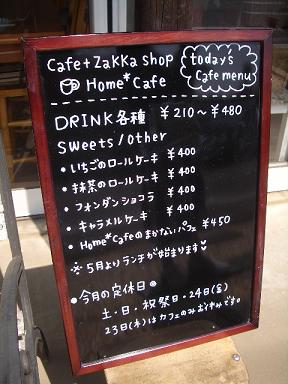 Cafe+Zakka shop
Home*Cafe
today's
Cafe menu
DRINK各種 ￥210～￥480
Sweets/Other
・いちごのロールケーキ ￥400
・抹茶のロールケーキ ￥400
・フォンダンショコラ ￥400
・キャラメルケーキ ￥400
・Home*Cafeのまかないパフェ ￥450
※5月よりランチが始まります
●今月の定休日●
土・日・祝祭日・24日(金)
23日(木)はカフェのみお休みです。